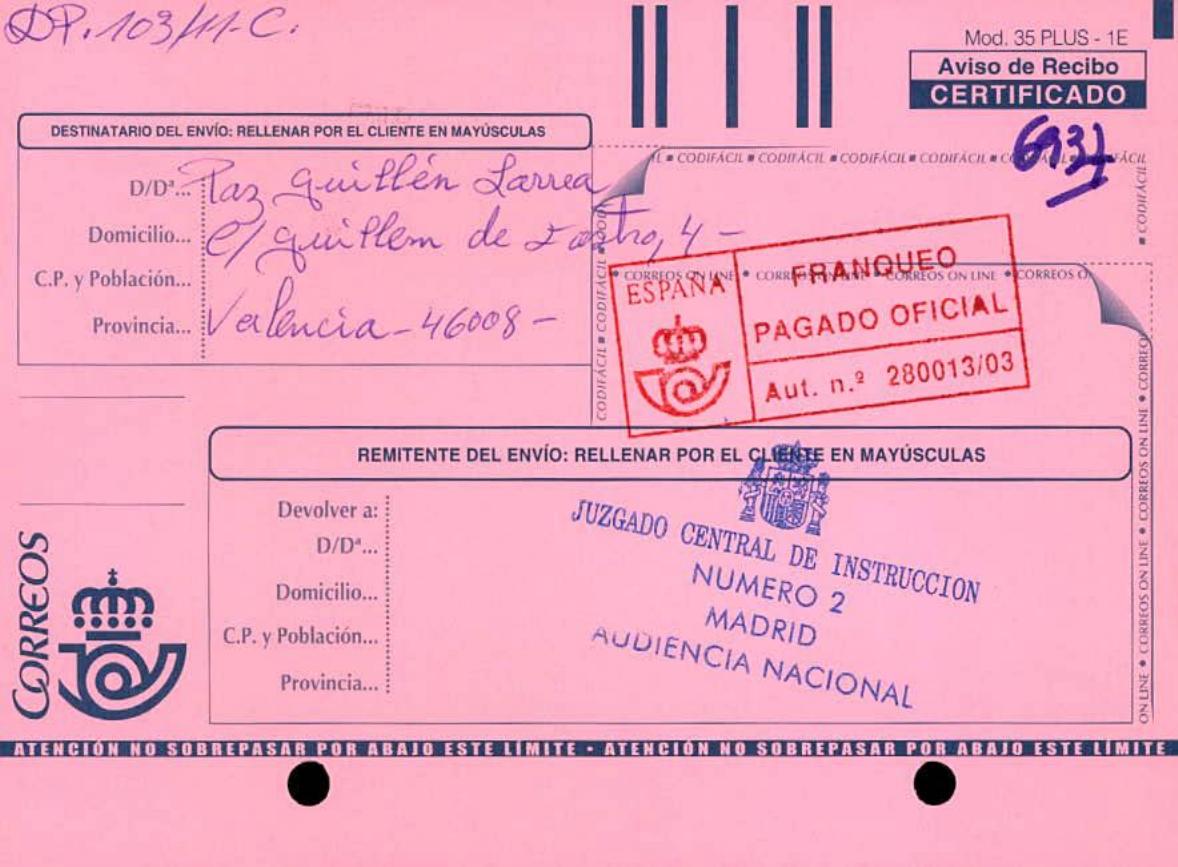 DP. 103/11-C.
Mod. 35 PLUS - 1E
Aviso de Recibo
CERTIFICADO
6931
DESTINATARIO DEL ENVÍO: RELLENAR POR EL CLIENTE EN MAYÚSCULAS
D/Dª... Paz Guillén Larrea
Domicilio... C/ Guillem de Castro, 4 -
C.P. y Población...
Provincia... Valencia - 46008 -
CODIFÁCIL ■ CODIFÁCIL ■ CODIFÁCIL ■ CODIFÁCIL
CORREOS ON LINE • CORREOS ON LINE • CORREOS ON LINE • CORREOS
ESPAÑA
FRANQUEO
PAGADO OFICIAL
Aut. n.º 280013/03
REMITENTE DEL ENVÍO: RELLENAR POR EL CLIENTE EN MAYÚSCULAS
Devolver a:
D/Dª...
Domicilio...
C.P. y Población...
Provincia...
JUZGADO CENTRAL DE INSTRUCCION
NUMERO 2
MADRID
AUDIENCIA NACIONAL
CORREOS
ON LINE • CORREOS ON LINE • CORREOS ON LINE • CORREOS ON LINE • CORREO
ATENCIÓN NO SOBREPASAR POR ABAJO ESTE LÍMITE • ATENCIÓN NO SOBREPASAR POR ABAJO ESTE LÍMITE